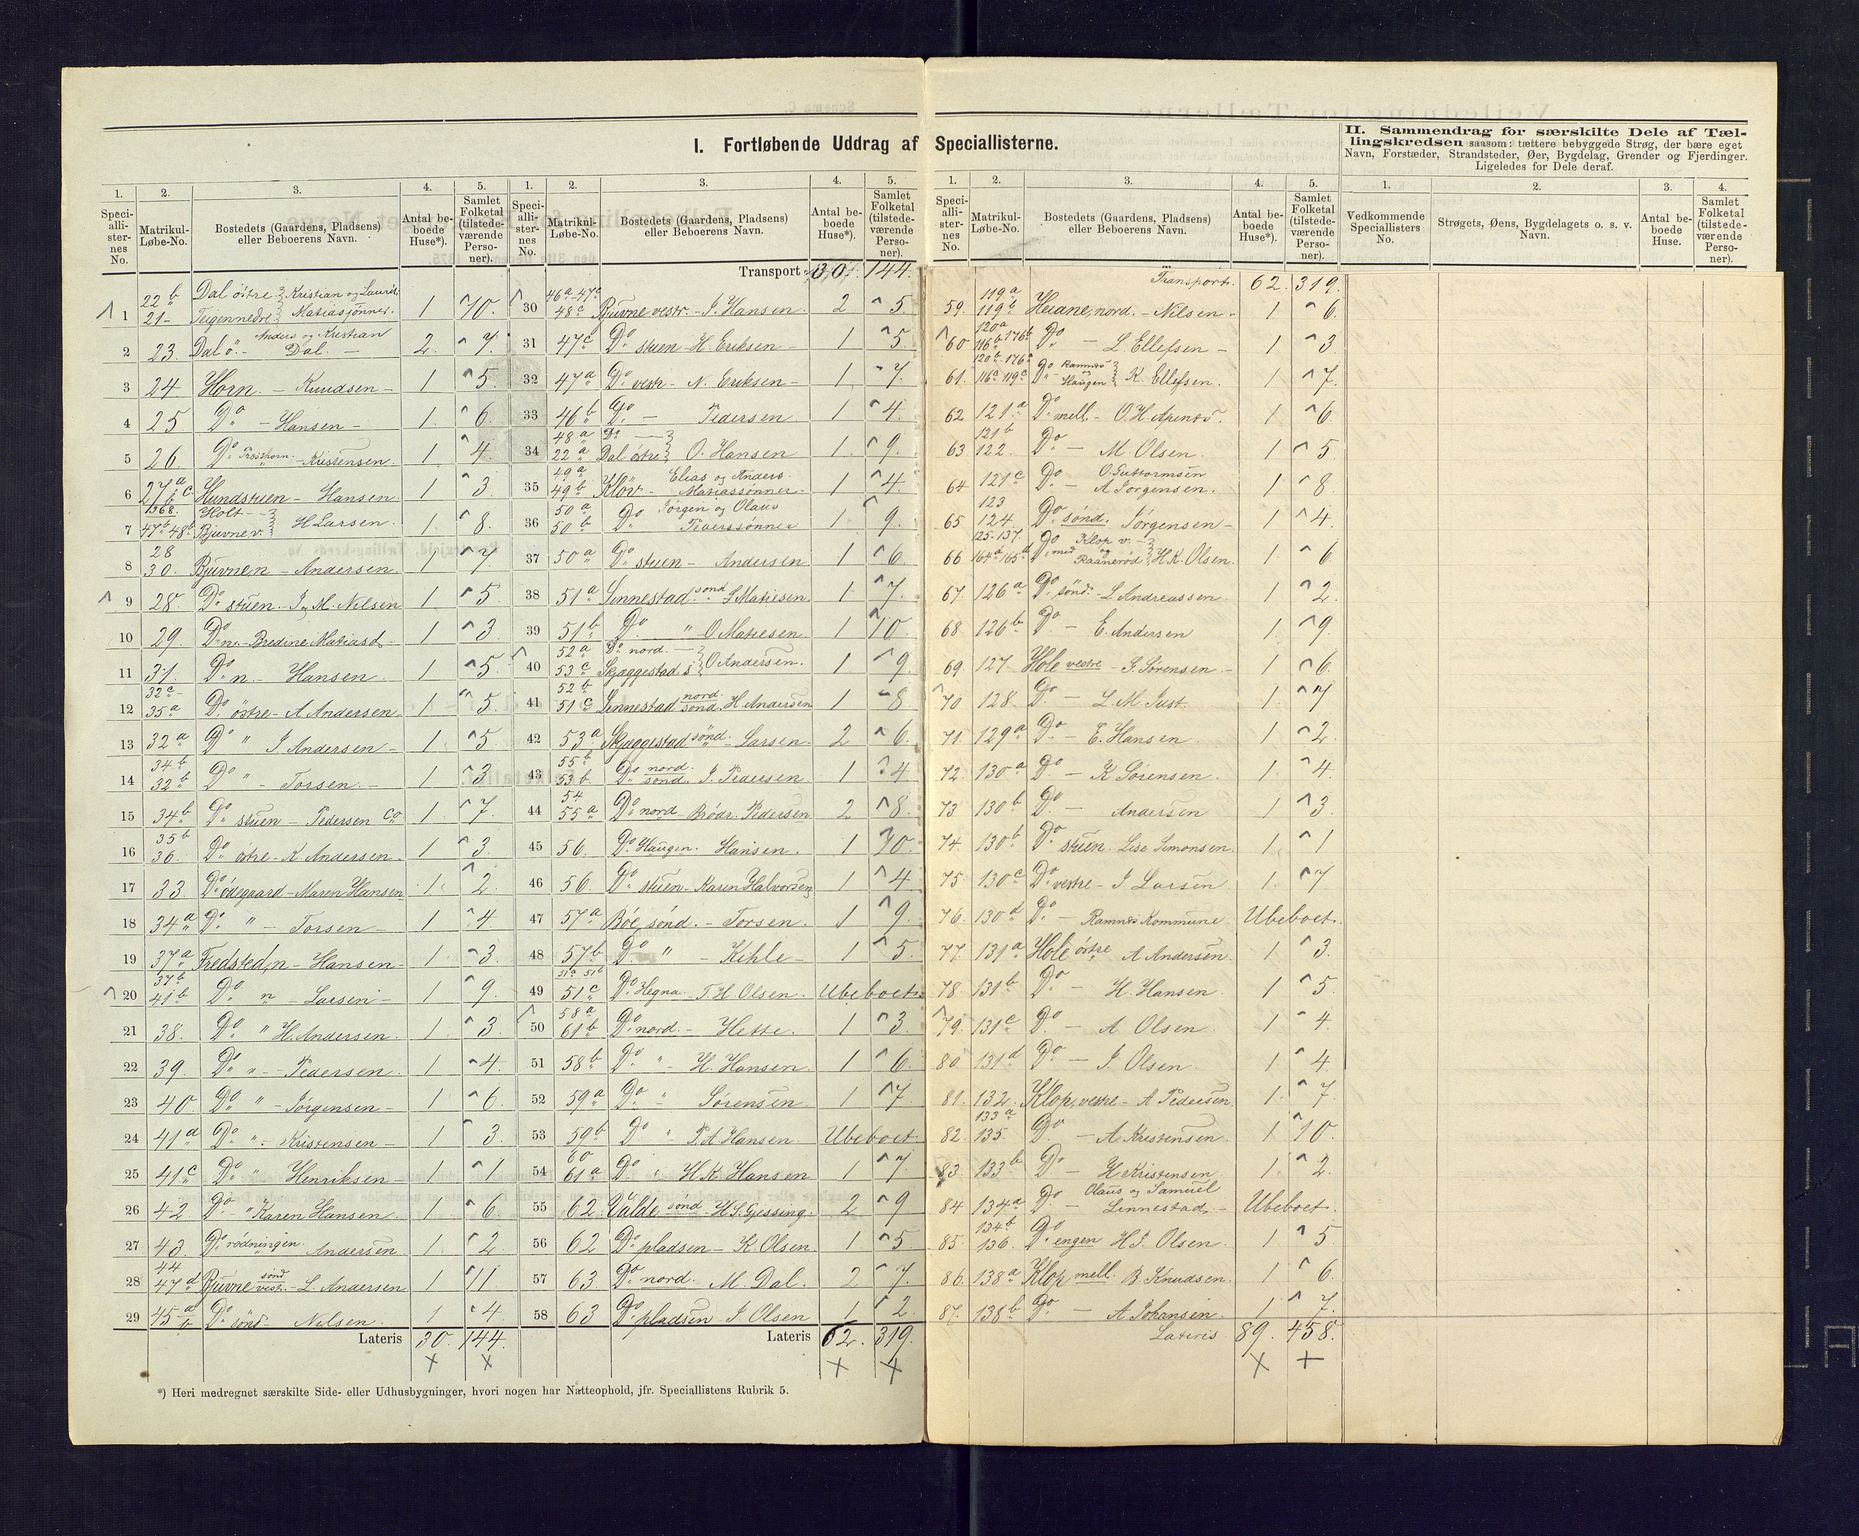 I. Fortløbende Uddrag af Speciallisterne.
II. Sammendrag for særskilte Dele af Tællingskredsen saasom: tættere bebyggede Strøg, der bære eget Navn, Forstæder, Strandsteder, Øer, Bygdelag, Grender og Fjerdinger. Ligeledes for Dele deraf.
1. 2. 3. 4. 5.
Speciallisternes No. Matrikul-Løbe-No. Bostedets (Gaardens, Pladsens) eller Beboerens Navn. Antal beboede Huse*). Samlet Folketal (tilstedeværende Personer).
1 22b 21 Dal östre Teigen nedre Kristian og Laurits Matiasjønner. 1 10.
2 23 Dal ö. Anders og Kristian Dal 2 7
3 24 Horn - Knudsen 1 5
4 25 Do - Hansen 1 6
5 26. Do - Kristensen. 1 4
6 27a b c Hundstuen - Hansen 1 3
7 1568. 47b 48b Holt Bjuvne v. H Larsen. 1 8
8 28 30. Bjuvne, n - Andersen 1 7
9 28 Do stuen. J. M. Nilsen 1 5
10 29 Do n. - Bredine Matiasd 1 3
11 31. Do n. Hansen 1 5
12 32c 35a Do östre - A Andersen 1 5
13 32a Do " J Andersen 1 5
14 34b 32b Do " Torsen 1 3
15 34b Do stuen - Pedersen Co 1 7
16 35b 36. Do östre - K Andersen 1 3
17 33 Do ödegaard - Maren Hansen 1 2
18 34a Do " - Torsen 1 4
19 37a Fredsted, n - Hansen 1 3
20 37b 41b Do n - Larsen 1 9
21 38. Do " H. Andersen 1 3
22 39. Do " - Pedersen 1 4
23 40 Do " - Jörgensen 1 6
24 41d Do " - Kristensen 1 3
25 41c Do " Henriksen 1 1
26 42 Do " Karen Hansen 1 6
27 43 Do rödningen. Andersen 1 2
28 44 47d Bjuvne sönd vest. - L. Andersen 1 11
29 45a Do sönd - Nilsen 1 4
Lateris 30. 144
Transport 30. 144.
30 46a-47c 48c Bjuvne vestr. - J. Hansen. 2 5
31 47c Do stuen - H. Eriksen 1 5
32 47a Do vestr - N. Eriksen 1 7.
33 46b Do - Pedersen 1 4.
34 48a 22a Do Dal östre O. Hansen 1 9.
35 49a 49b Klöv - Elias og Anders. Matiassönner 1 4.
36 50a 50b Do Jörgen og Olaus Pederssönner 1 9.
37 50a Do stuen - Andersen 1 6
38 51a Linnestad sönd L Matiesen 1 7
39 51b Do " O. Matiesen 1 10.
40 52a 53c Do nord. Skjaggestad s O Andersen. 1 9
41 52b 51c Linnestad nord sönd. H. Andersen 1 8
42 53a Skjaggestad sönd. - Larsen 2 6
43 55b 53b Do nord. sönd. J. Pedersen 1 4
44 54 55a Do nord Brödr. Pedersen 2 8
45 56. Do Haugen. Hansen. 1 10.
46 56. Do stuen - Karen Halvorsen 1 4
47 57a Böe, sönd. - Torsen. 1 9
48 57b Do " - Kihle 1 5
49 51a 51b 51c Do Hegna - T. H. Olsen. Ubeboet.
50 58a 61b Do nord. - Hesse. 1 3
51 58b Do " H. Hansen 1 6
52 59a Do " Sörensen 1 7
53 59b Do " P. A. Hansen. Ubeboet
54 60 61a Do " H. K. Hansen 1 7
55 62 Valde, sönd - H. S. Gjessing. 2 9
56 62 Do pladsen - K. Olsen 1 5
57 63 Do nord. M. Dal 2 7.
58 63 Do pladsen J. Olsen 1 2
Lateris 62. 319.
Transport. 62. 319.
59. 119a 119b Heiane, nord. - Nilsen 1 6
60 120a 116b-176b Do - L. Ellefsen 1 3
61. 120b-176a 116a 119c Do Ramnes og Haugen K. Ellefsen. 1 7.
62 121a Do mell. - O. H. Apenæs. 1 6
63 121b 122. Do - M. Olsen. 1 5
64 121c Do - O Guttormsen A Jorgensen. 1 8
65 123 124. Do sönd. Jörgensen 1 4
66 125-137. 164a/165a Do med Klop v. og Raanerød H. K. Olsen. 1 6
67. 126a Do sönd. - L Andreassen. 1 2
68. 126b Do - E. Andersen 1 9
69 127. Hole vestre - G. Sörensen 1 6
70 128. Do - L. M. Just. 1 7
71. 129a Do - E. Hansen 1 2.
72. 130a Do - K Sörensen. 1 4
73 130b Do - Andersen 1 3
74 130b Do stuen. Lise Simonsen. 1 1
75. 130c Do vestre - J. Larsen 1 7
76. 130d Do - Ramnes Kommune Ubeboet.
77. 131a Hole östre A Andersen. 1 3.
78. 131b Do - H. Hansen 1 5
79. 131c Do - A Olsen 1 4
80. 131d Do - J. Olsen. 1 4
81. 132 Klop, vestre - A Pedersen 1 7.
82. 133a 135. Do - A Kristensen 1 10.
83. 133b Do - H Kristensen 1 2
84 134a Do - Olaus og Samuel Linnestad. Ubeboet.
85. 134b 136. Do engen H. J. Olsen. 1 5
86. 138a Klop mell. B. Knudsen. 1 6.
87. 138b Do - A Johansen. 1 7.
Lateris 89. 458.
1. 2. 3. 4.
Vedkommende Speciallisters No. Strøgets, Øens, Bygdelagets o. s. v. Navn. Antal beboede Huse. Samlet Folketal (tilstedeværende Personer).
*) Heri medregnet særskilte Side- eller Udhusbygninger, hvori nogen har Natteophold, jfr. Speciallistens Rubrik 5.